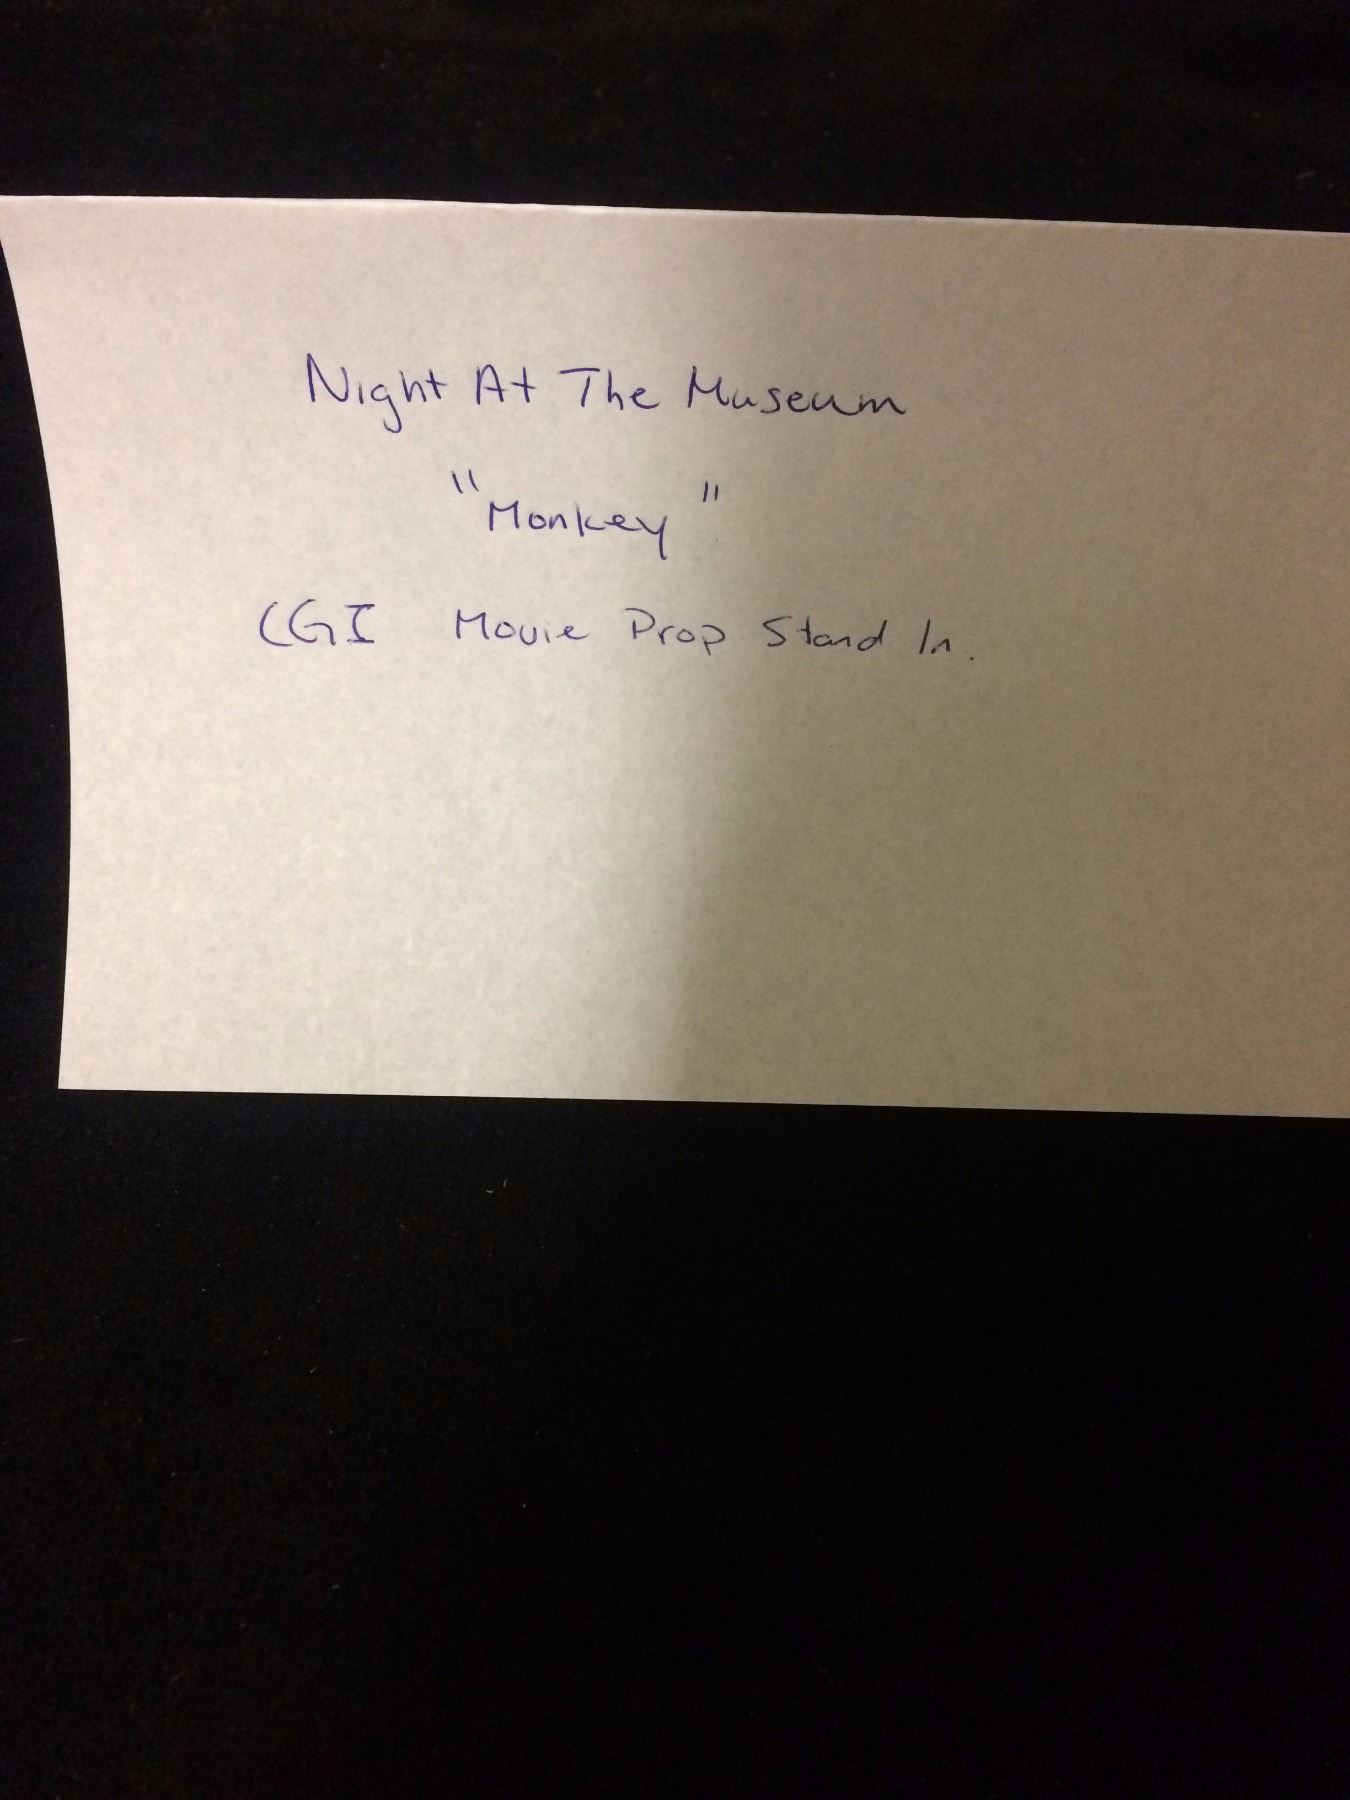 Night At The Museum
"Monkey"
CGI Movie Prop Stand In.